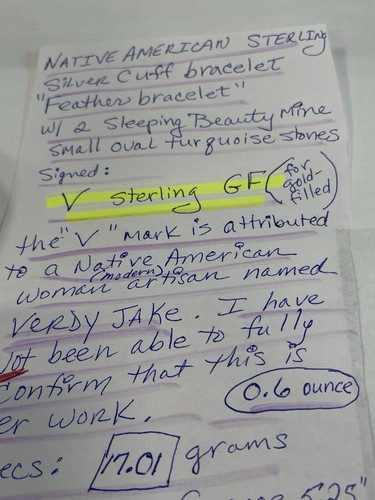 NATIVE AMERICAN STERLING
Silver Cuff bracelet
"Feather bracelet"
w/ 2 Sleeping Beauty Mine
small oval turquoise stones
Signed:
V sterling GF (for gold-filled)
the "V" mark is attributed
to a Native American
(modern)
woman artisan named
VERDY JAKE. I have
Not been able to fully
Confirm that this is
er work.
0.6 ounce
ecs: 17.01 grams
5.25"